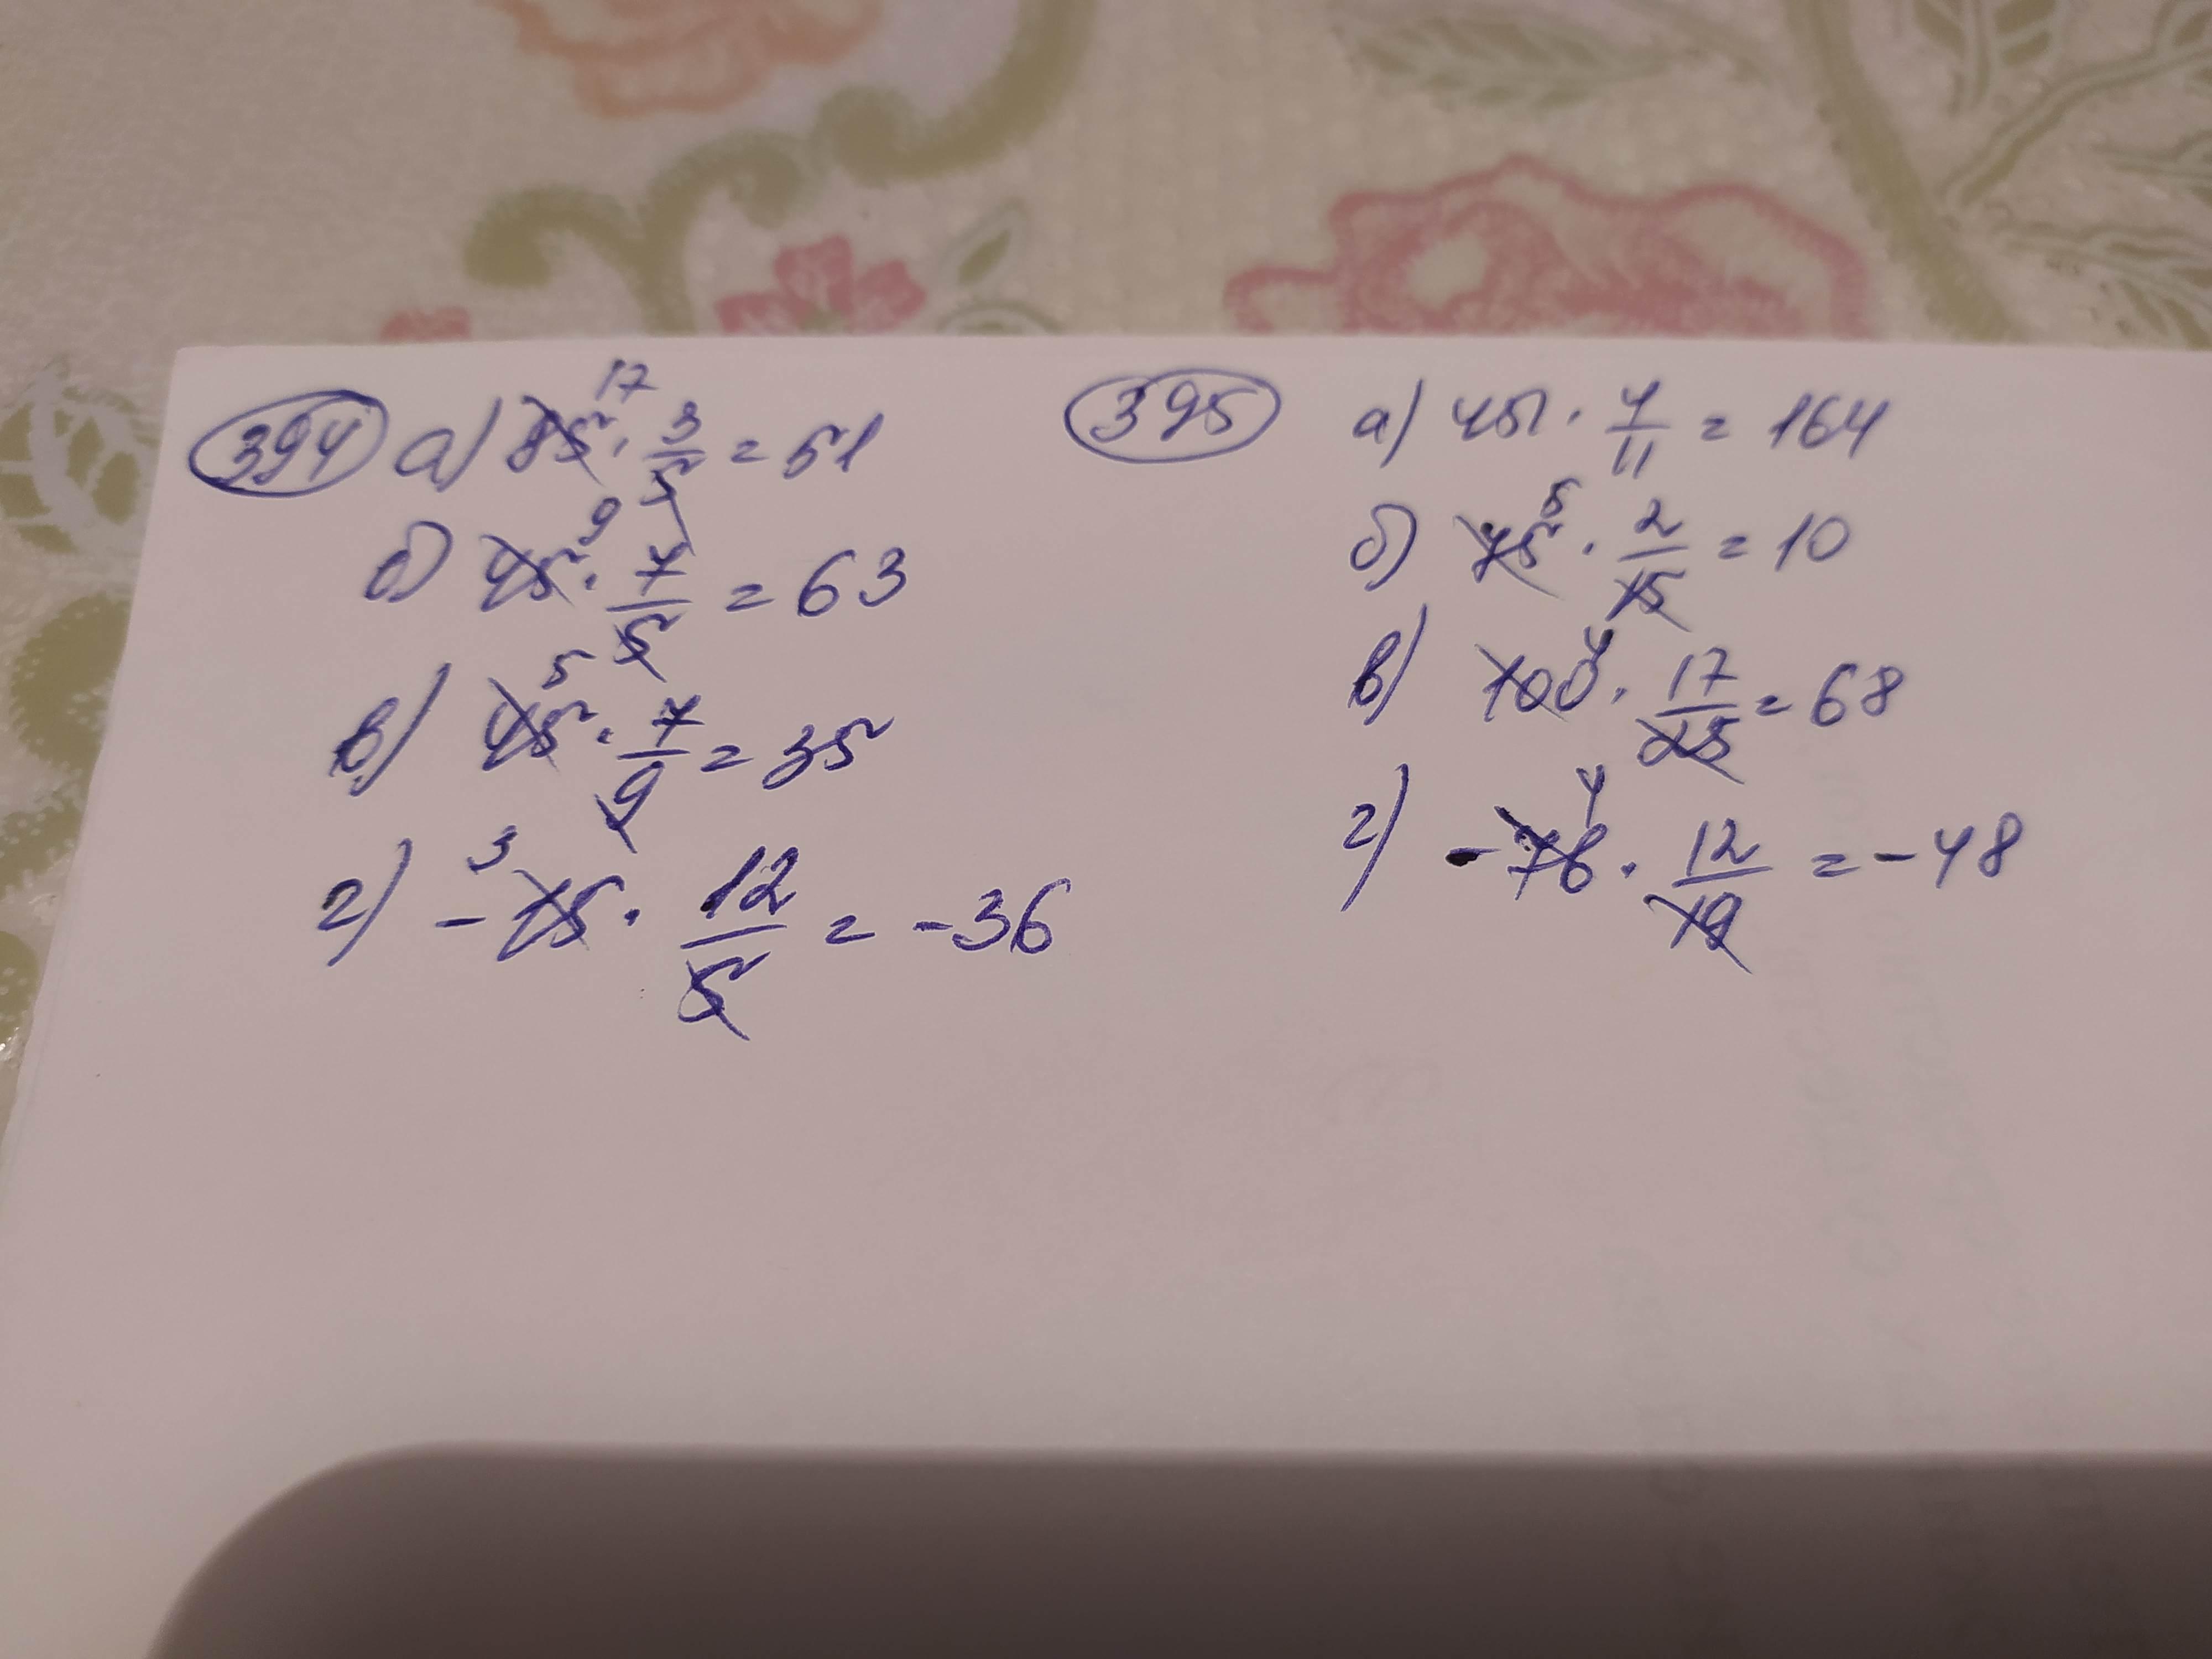 394 а) 85 17 · 3/5 = 51
б) 45 9 · 7/5 = 63
в) 45 5 · 7/9 = 35
г) - 15 3 · 12/5 = -36
395 а) 451 · 4/11 = 164
б) 75 5 · 2/15 = 10
в) 100 4 · 17/25 = 68
г) - 76 4 · 12/19 = -48